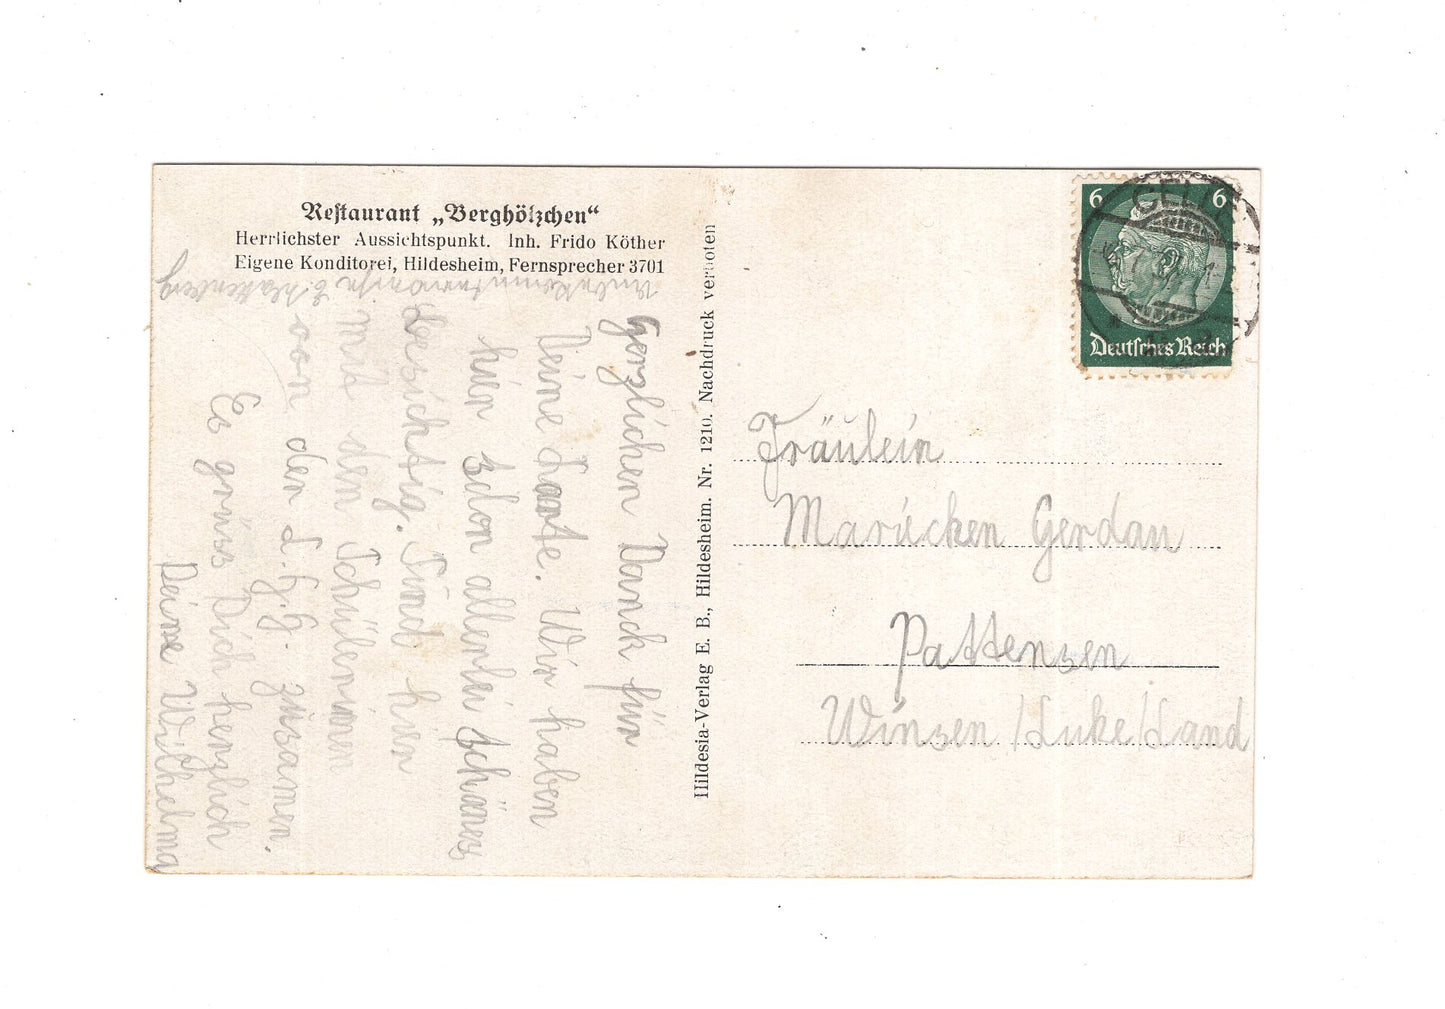 Restaurant „Berghölzchen“
Herrlichster Aussichtspunkt. Inh. Frido Köther
Eigene Konditorei, Hildesheim, Fernsprecher 3701
Herzlichen Danck für
Deine Karte. Wir haben
hier schon allerlei schönes
besichtig. Sind hier
mit den Schülerinnen
von der L.H.H. zusamen.
Es grüss Dich herzlich
Deine Wilhelma
Hildesia-Verlag E. B., Hildesheim. Nr. 1210. Nachdruck verboten
6 6
CELLE
Deutsches Reich
Fräulein
Mariecken Gerdau
Pattensen
Winsen /Luhe/Land